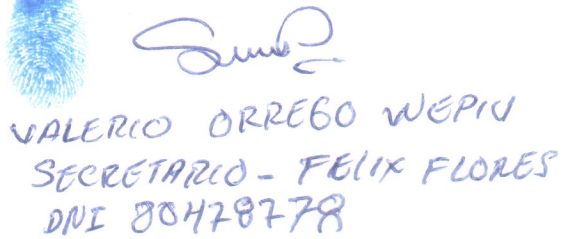 VALERIO ORREGO WEPIU
SECRETARIO - FELIX FLORES
DNI 80478778